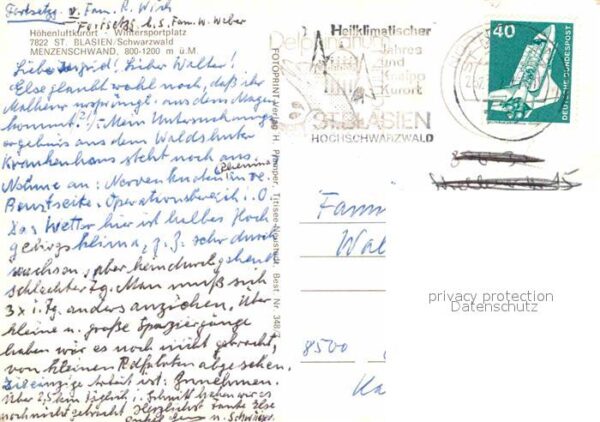 Fortsetzg v. Fam. R. Wirth
Fortsetzg b. S. Fam. W. Weber
Höhenluftkurort - Wintersportplatz
7822 ST. BLASIEN/Schwarzwald
MENZENSCHWAND, 800-1200 m ü.M.
Liebe Ingrid! Lieber Walter!
Else glaubt wohl noch, daß ihr
Malheur ursprüngl. aus dem Magen
kommt. Mein Untersuchungs
ergebnis aus dem Waldshuter
Krankenhaus steht noch aus.
Nehme an: Nerven
Brustseite. Operationsbereich i. O.
Das Wetter hier ist halbes Hoch
gebirgsklima, z. Z. sehr durch
wachsen, aber kein durchgehend
schlechter Tg. Man muß sich
3x i. Tg. anders anziehen. Über
kleine u. große Spaziergänge
haben wir es noch nicht gebracht,
von kleinen Rdfahrten abgesehen.
Die einzige Arbeit ist: Einnehmen.
Über 2,5 km täglich i. Schnitt haben wir es
noch nicht gebracht Herzlichst Tante Else
u. Schwager
FOTOPRINT-Verlag H. Pfamper, Titisee-Neustadt, Best. Nr. 348/
Heilklimatischer
Jahres
und
Kneipp
Kurort
ST. BLASIEN
HOCHSCHWARZWALD
40
DEUTSCHE BUNDESPOST
Fami
Wal
8500
privacy protection
Datenschutz